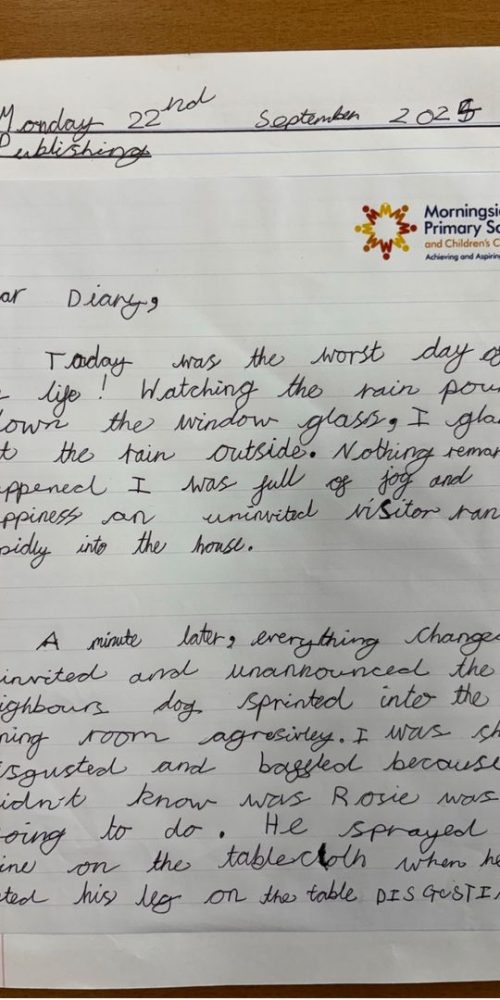 Monday 22nd September 2025
Publishing
Morningsi
Primary Sc
and Children's C
Achieving and Aspirin
ar Diary,
Today was the worst day of
life! Watching the rain pour
lown the window glass, I gla
t the rain outside. Nothing remar
appened I was full of jog and
ppiness an uninvited visitor ran
pidly into the house.
A minute later, everything changed
invited and unannounced the
ighbours dog sprinted into the
ning room agresivley. I was sh
isgusted and baggled because
idn't know was Rosie was
oing to do. He sprayed
ine on the tablecloth when he
ted his leg on the table DISGUSTIN